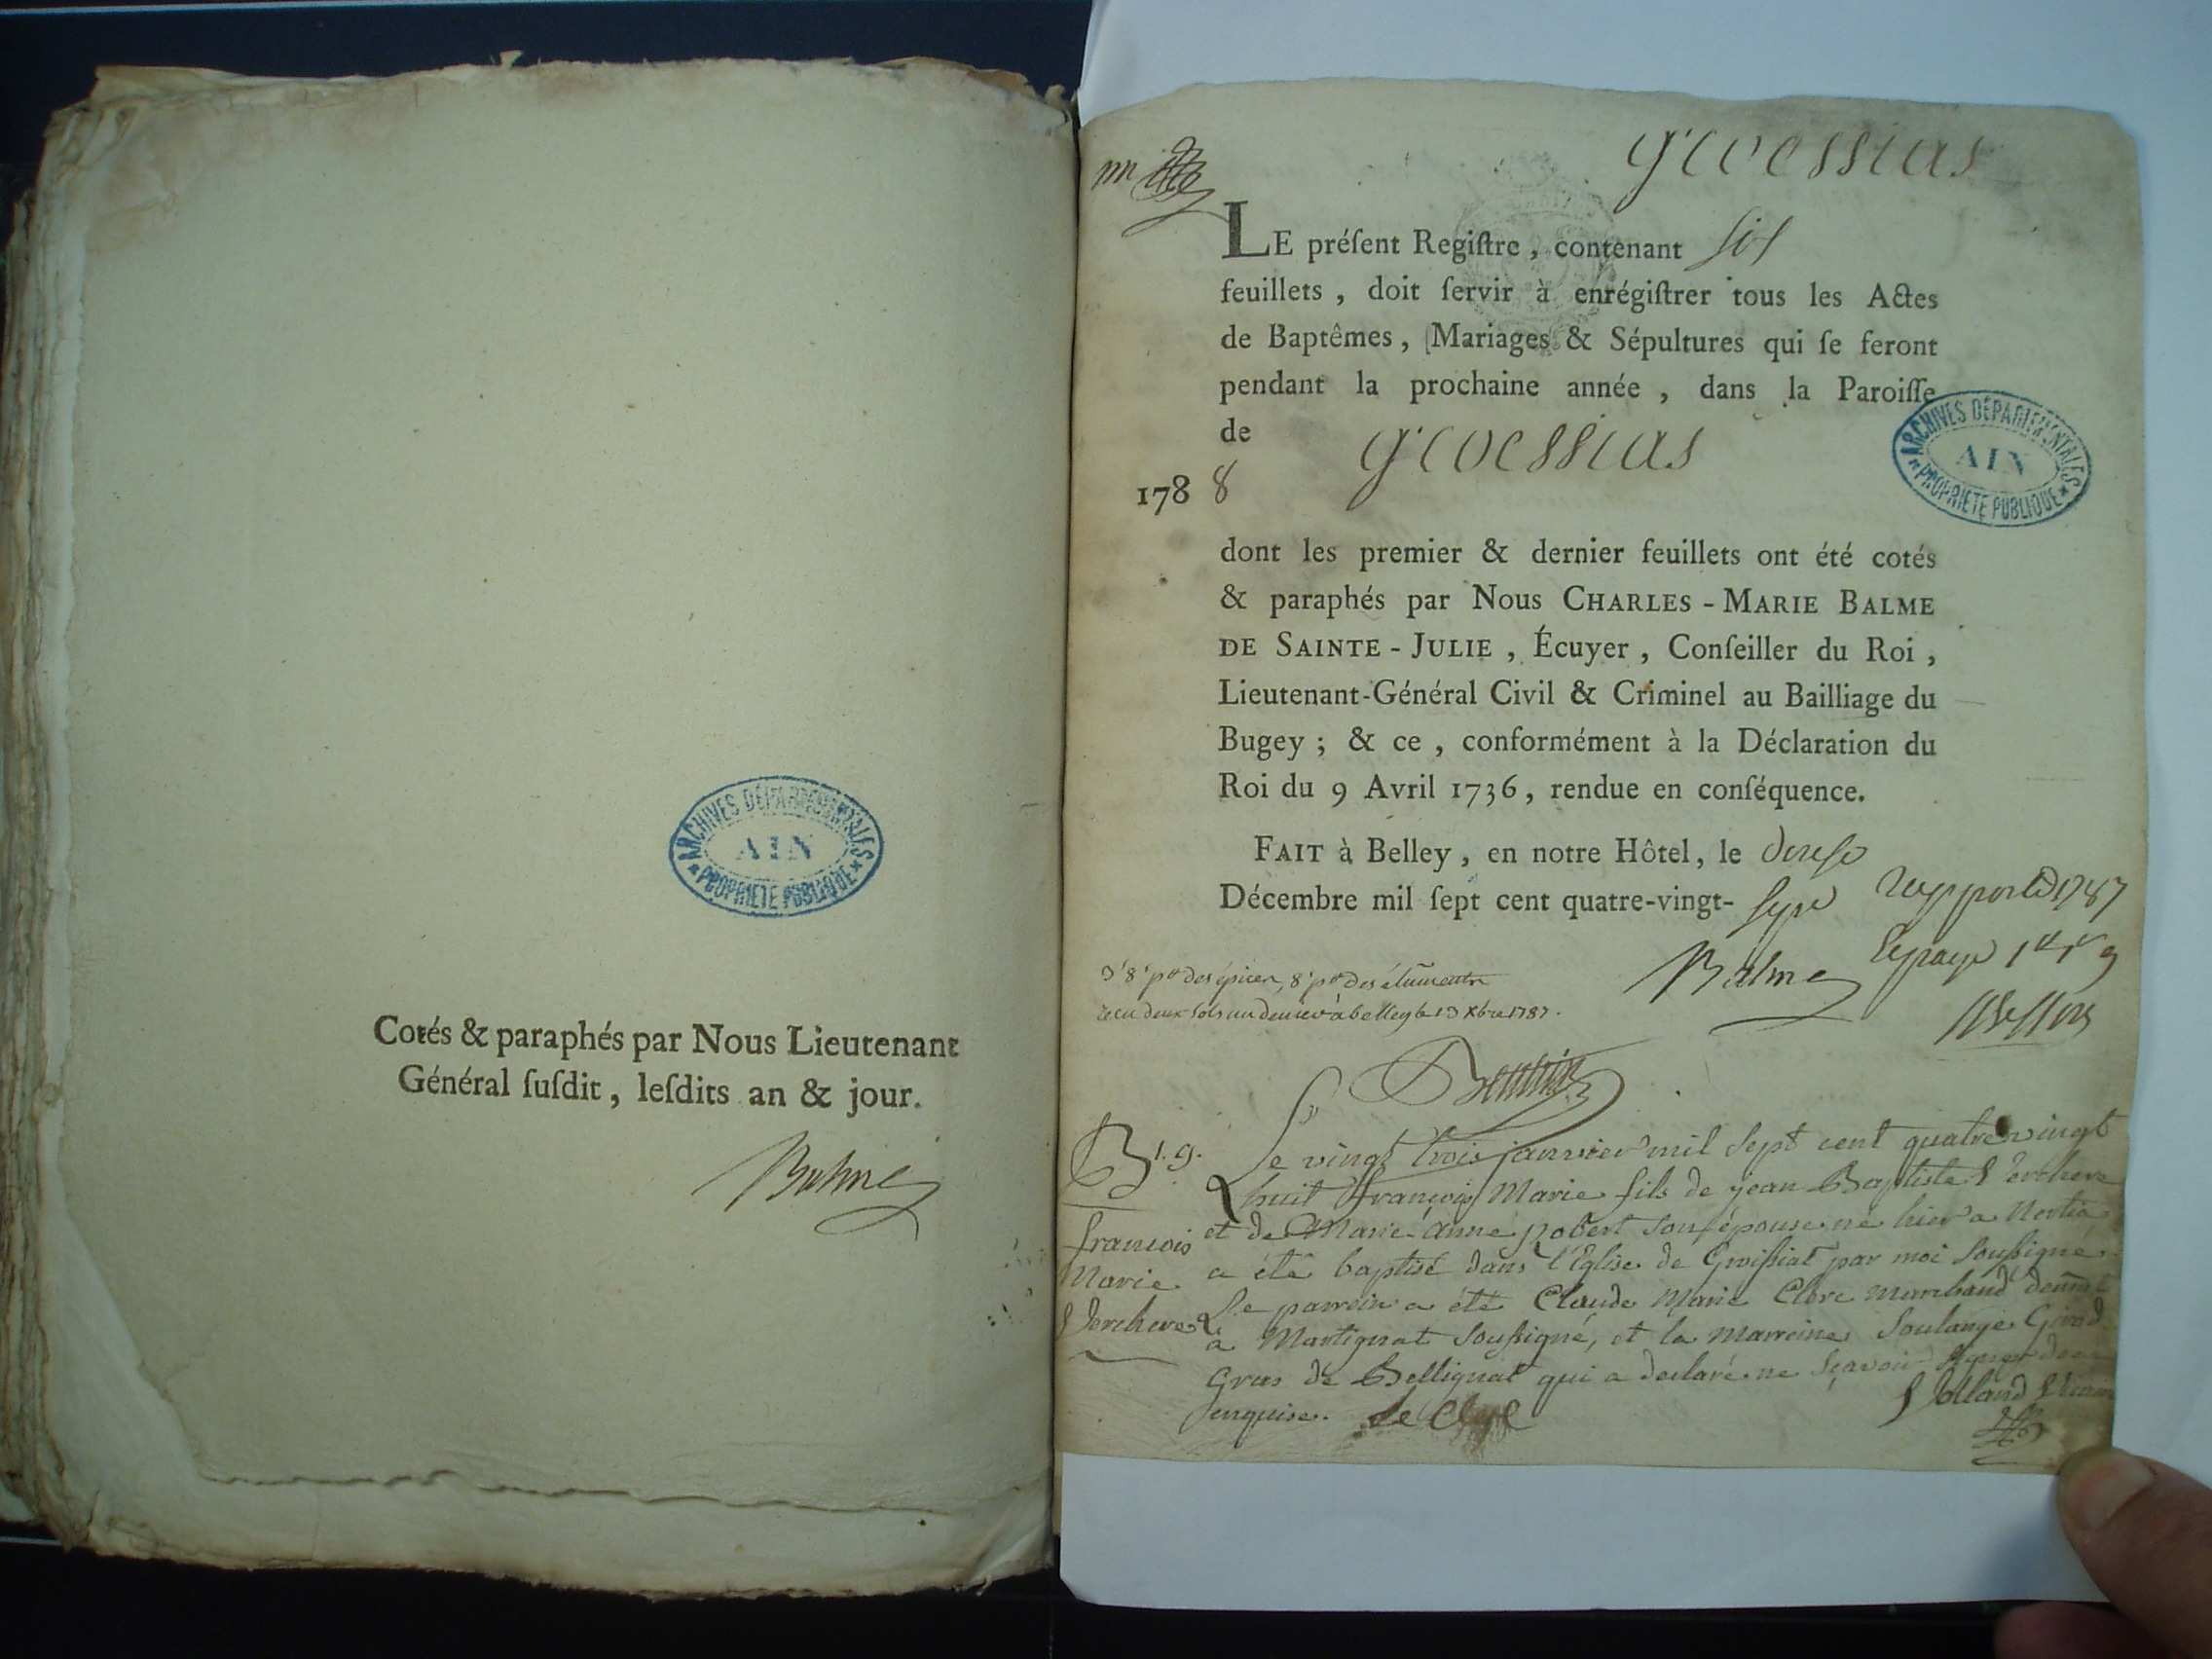 ARCHIVES DÉPARTEMENTALES
AIN
PROPRIÉTÉ PUBLIQUE
Cotés & paraphés par Nous Lieutenant
Général ſuſdit, leſdits an & jour.
Balme
groessias
LE préſent Regiſtre, contenant six
feuillets, doit ſervir à enrégiſtrer tous les Actes
de Baptêmes, Mariages & Sépultures qui ſe feront
pendant la prochaine année, dans la Paroiſſe
de groessias
1788
ARCHIVES DÉPARTEMENTALES
AIN
PROPRIÉTÉ PUBLIQUE
dont les premier & dernier feuillets ont été cotés
& paraphés par Nous CHARLES-MARIE BALME
DE SAINTE-JULIE, Écuyer, Conſeiller du Roi,
Lieutenant-Général Civil & Criminel au Bailliage du
Bugey; & ce, conformément à la Déclaration du
Roi du 9 Avril 1736, rendue en conſéquence.
FAIT à Belley, en notre Hôtel, le douse
Décembre mil ſept cent quatre-vingt-sept
Balme
recu deux sols un denier à belley le 13 Xbre 1787.
B 1. g.
Le vingt trois janvier mil sept cent quatre vingt
huit françois Marie fils de jean Baptiste Verchere
et de Marie-Anne robert son épouse né hier a
a été baptisé dans l'Eglise de Groissiat par moi soussigné
Le parrein a été Claude Marie Clerc marchand
a Martignat soussigné, et la marreine Soulange Girod
Gras de Bellignat qui a déclaré ne sçavoir signer de ce
enquise.
françois
Marie
Verchere